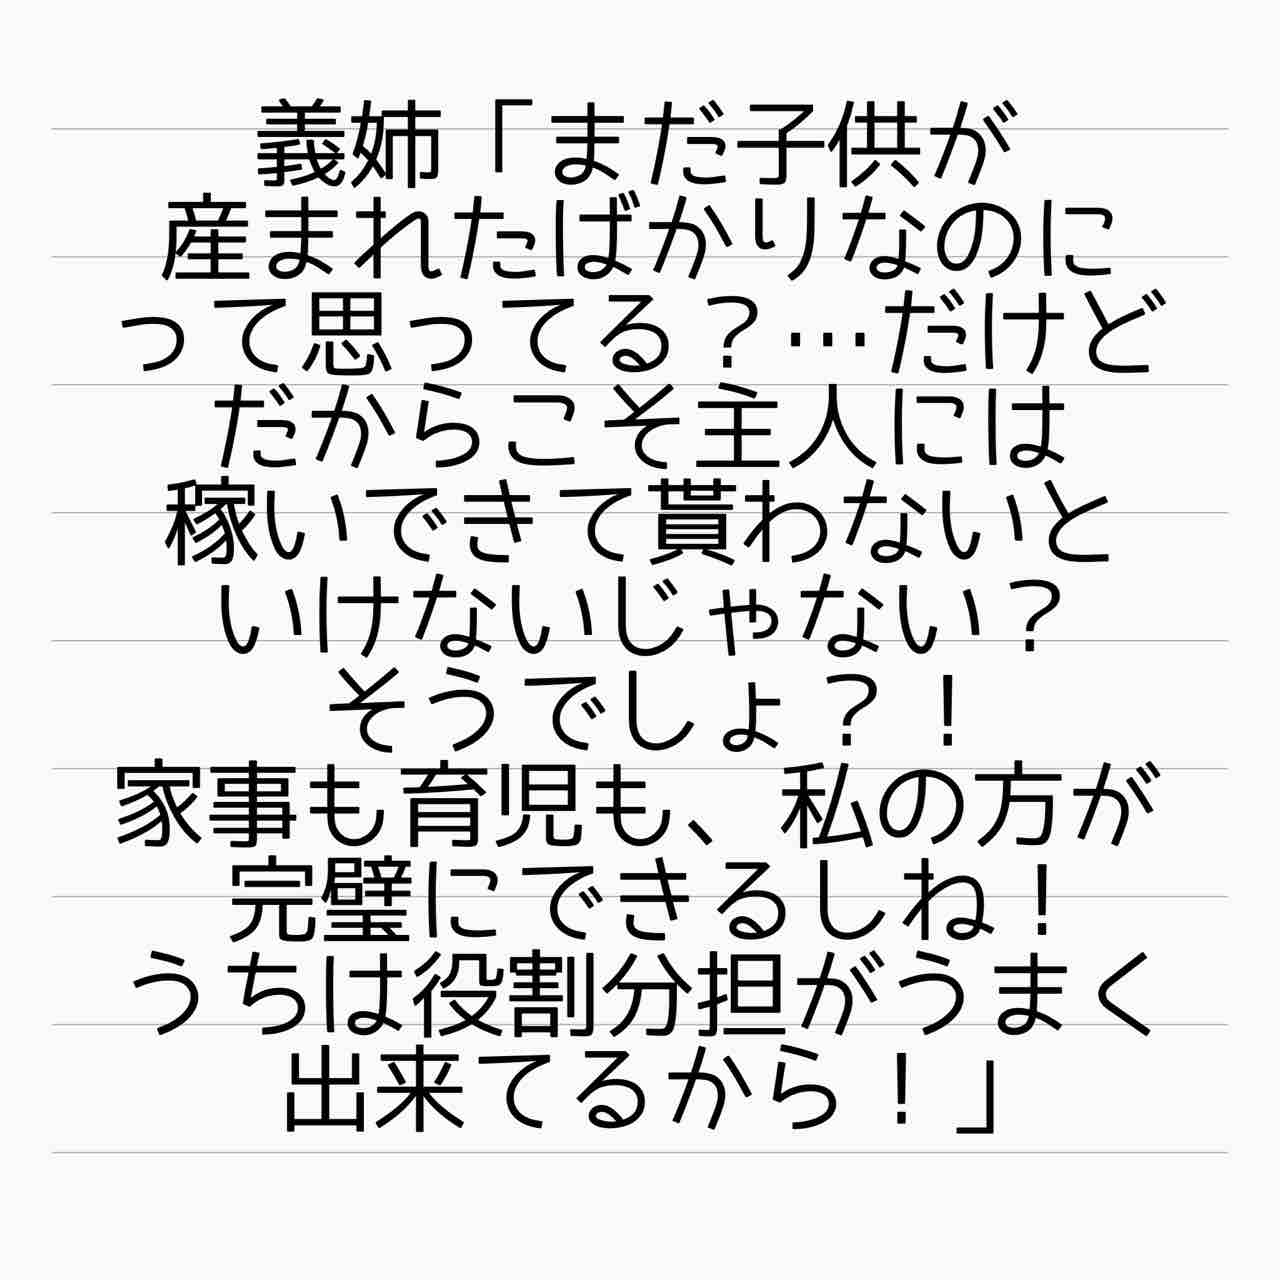 義姉「まだ子供が
産まれたばかりなのに
って思ってる？…だけど
だからこそ主人には
稼いできて貰わないと
いけないじゃない？
そうでしょ？！
家事も育児も、私の方が
完璧にできるしね！
うちは役割分担がうまく
出来てるから！」